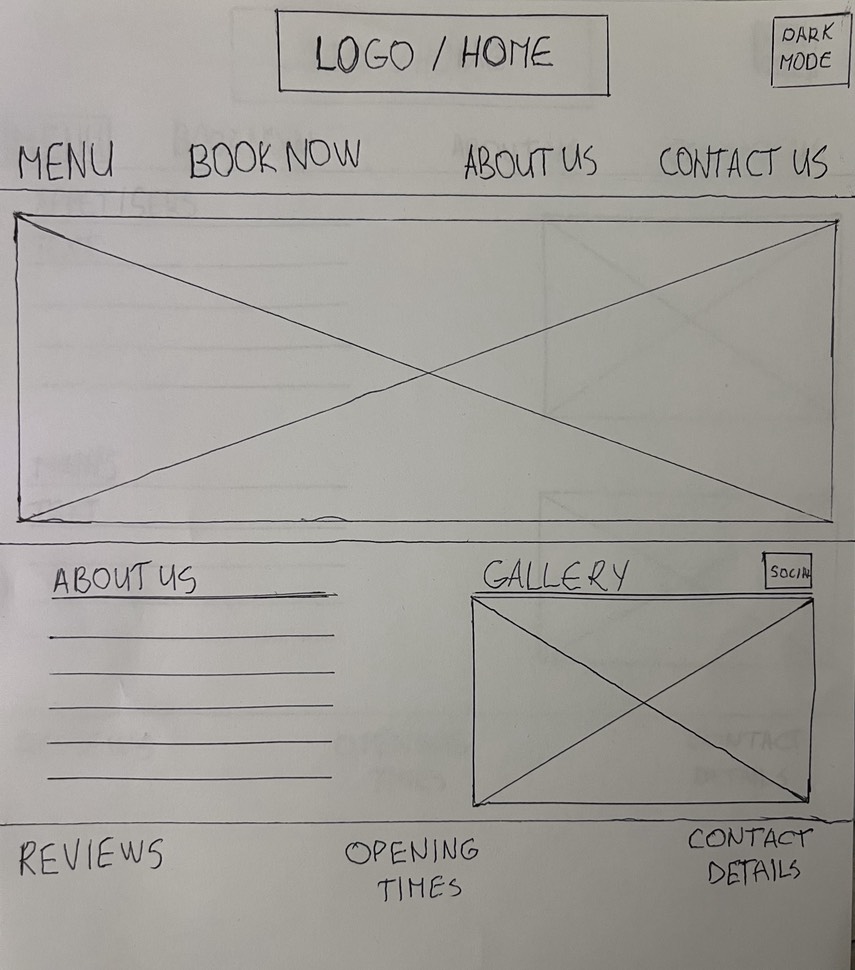 LOGO / HOME
DARK
MODE
MENU BOOK NOW ABOUT US CONTACT US
ABOUT US
GALLERY
SOCIAL
REVIEWS
OPENING
TIMES
CONTACT
DETAILS